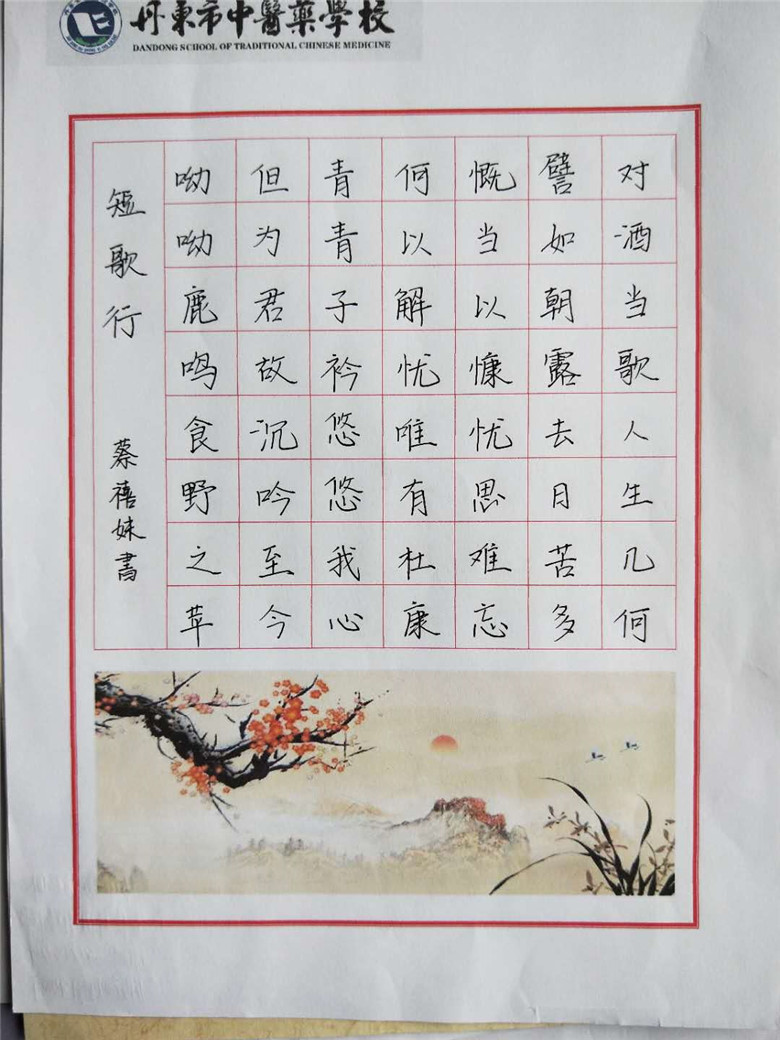 丹東市中醫藥學校
DANDONG SCHOOL OF TRADITIONAL CHINESE MEDICINE
对酒当歌人生几何
譬如朝露去日苦多
慨当以慷忧思难忘
何以解忧唯有杜康
青青子衿悠悠我心
但为君故沉吟至今
呦呦鹿鸣食野之苹
短歌行
蔡禧妹書